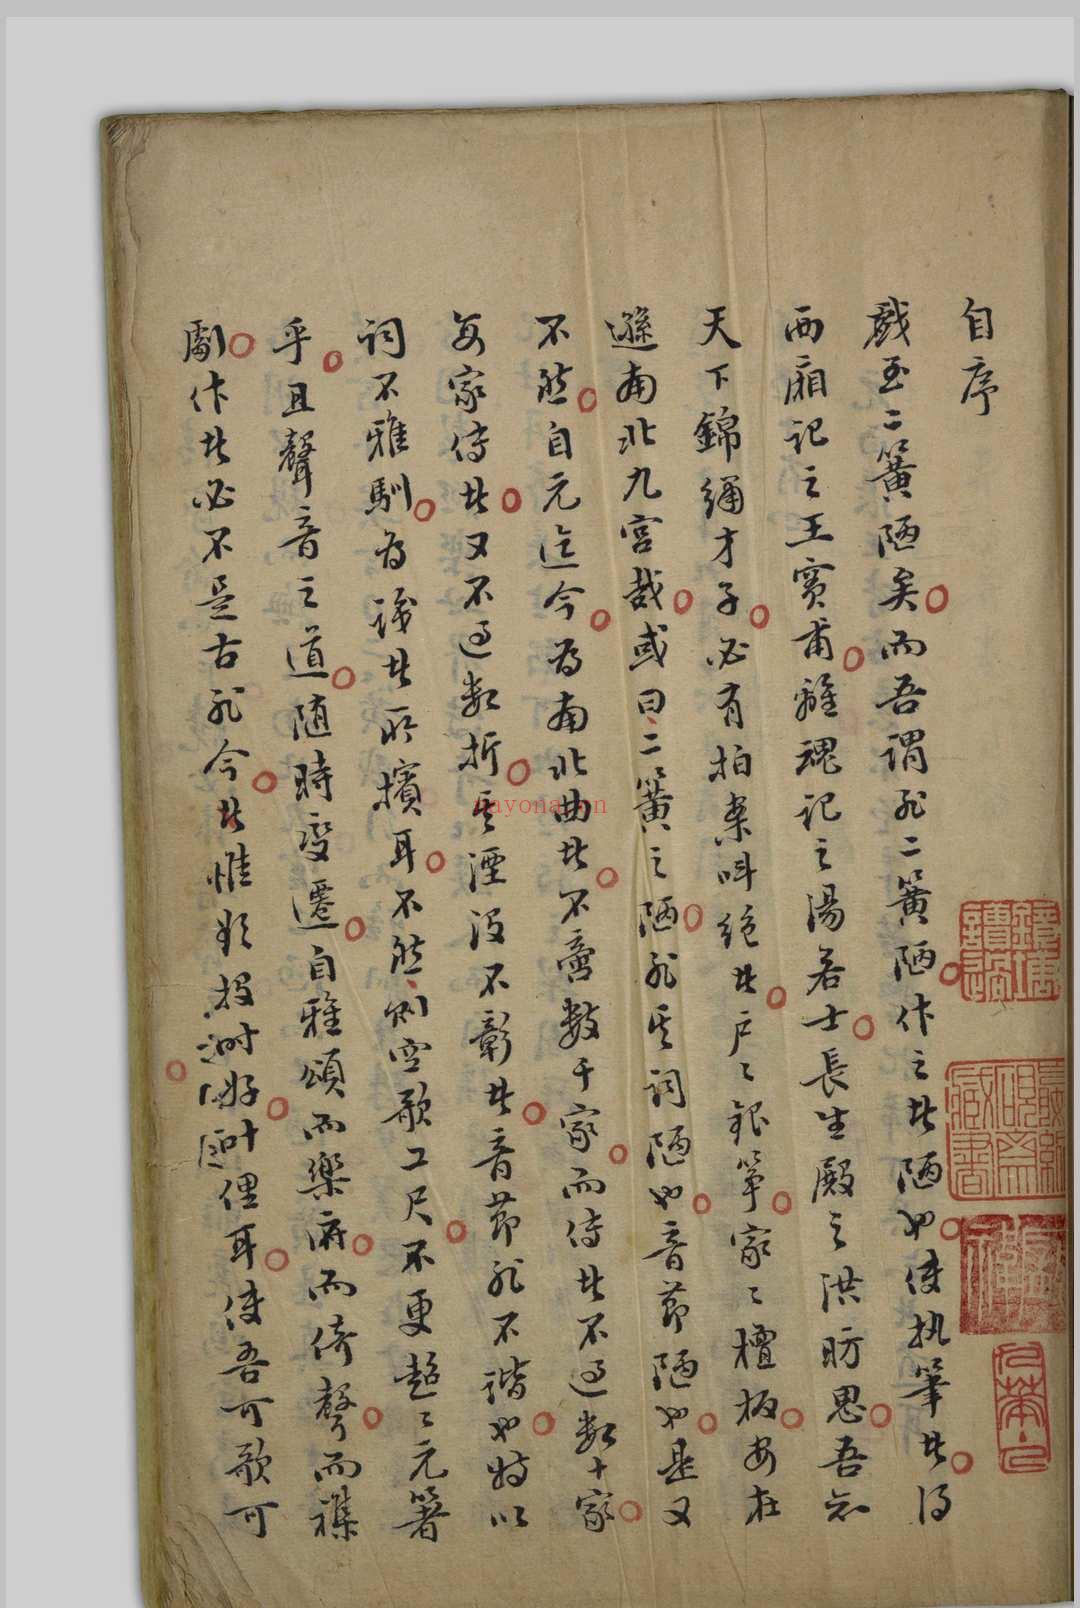 自序
戲至二簧陋矣而吾謂非二簧陋作之者陋也使執筆者得
西廂記之王實甫離魂記之湯若士長生殿之洪昉思吾知
天下錦繡才子必有拍案叫絕者戶〻銀箏家〻檀板安在
遜南北九宮哉或曰二簧之陋非其詞陋也音節陋也是又
不然自元迄今為南北曲者不啻數千家而傳者不過數十家
每家傳者又不過數折其湮沒不彰者音節非不諧也特以
詞不雅馴為識者所擯耳不然則空歌工尺不更超〻元箸
乎且聲音之道隨時變遷自雅頌而樂府而倚聲而襍
劇作者必不是古非今者惟欲投時好叶俚耳使吾可歌可